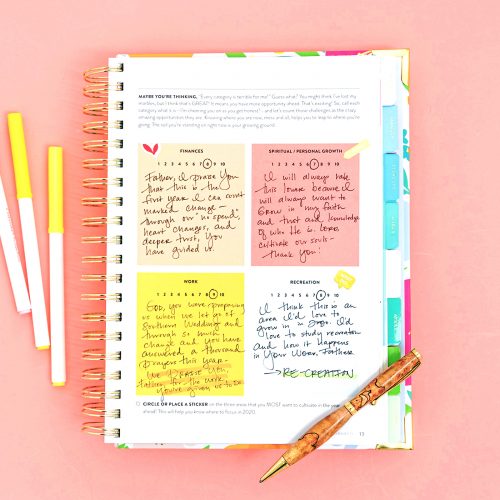 MAYBE YOU'RE THINKING, "Every category is terrible for me!" Guess what? You might think I've lost my
marbles, but I think that's GREAT! It means you have more opportunity ahead. That's exciting! So, call each
category what it is: "I'm choosing you on as you get honest!"—and let's count those categories as the
amazing opportunities they are. Knowing where you are now, mess and all, helps you to leap to where you're
going. The soil you're standing on right now is your growing ground.
FINANCES
1 2 3 4 5 6 7 8 9 10
Father, I praise You
that this is the
first year I can count
marked change—
through our spend,
heart changes, and
deeper trust, You
have guided us.
SPIRITUAL / PERSONAL GROWTH
1 2 3 4 5 6 7 8 9 10
I will always take
this lower because I
will always want to
grow in my faith
and trust and knowledge
of who He is. LORD,
cultivate our souls—
thank you!
WORK
1 2 3 4 5 6 7 8 9 10
God, you were preparing
us when we let go of
Southern Weddings and
through so much
change and you have
answered a thousand
prayers this year.
We PRAISE You,
Father, for the work
You've given us to do
RECREATION
1 2 3 4 5 6 7 8 9 10
I think this is an
area I'd love to
grow in I'd
love to study recreation
and how it happens
in Your Word, Father.
→ RE-CREATION
CIRCLE OR PLACE A STICKER on the three areas that you MOST want to cultivate in the year
ahead! This will help you know where to focus in 2020.
13